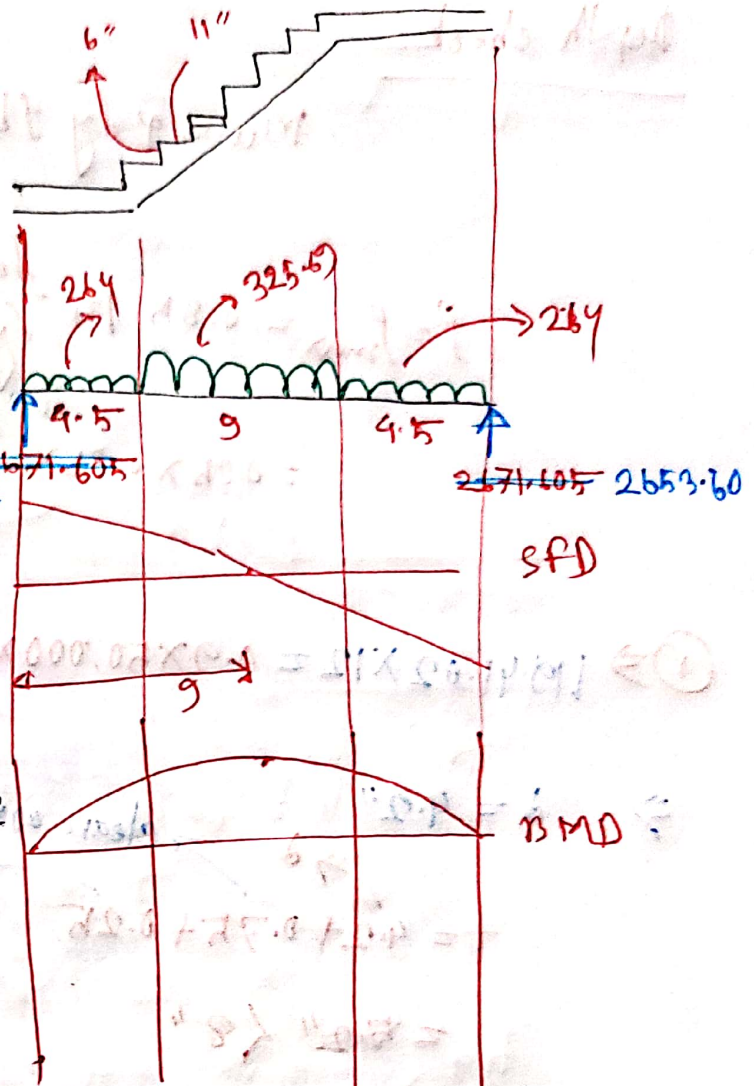 6" 11"
264 325.69 264
4.5 9 4.5
671.605 2671.605 2653.60
SFD
9
BMD